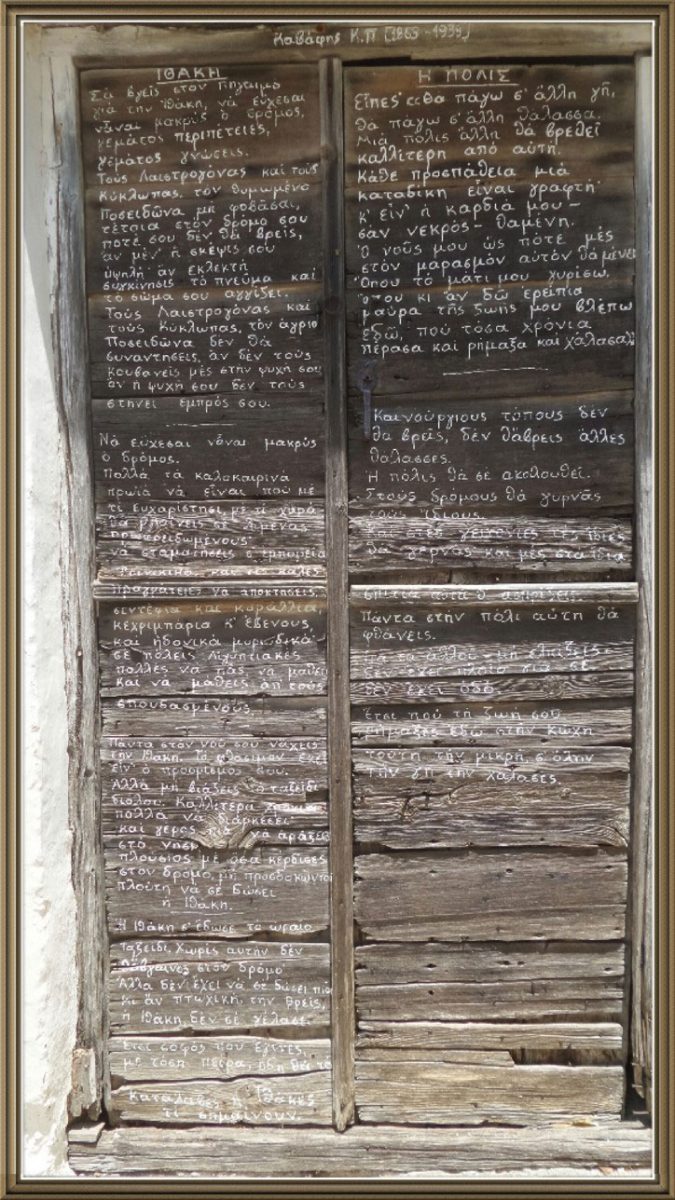 Καβάφης Κ.Π (1863-1933)
ΙΘΑΚΗ
Σα βγεις στον πηγαιμο
για την Ιθάκη, να εύχεσαι
νάναι μακρύς ο δρόμος,
γεμάτος περιπέτειες,
γεμάτος γνώσεις.
Τούς Λαιστρυγόνας καί τούς
Κύκλωπας, τόν θυμωμένο
Ποσειδώνα μη φοβάσαι,
τέτοια στον δρόμο σου
ποτέ σου δέν θά βρείς,
άν μέν' ή σκέψις σου
ύψηλή, άν εκλεκτή
συγκίνησις τό πνεύμα καί
τό σώμα σου αγγίζει.
Τούς Λαιστρυγόνας καί
τούς Κύκλωπας, τόν άγριο
Ποσειδώνα δέν θά
συναντήσεις, άν δέν τούς
κουβανείς μές στήν ψυχή σου
άν ή ψυχή σου δέν τούς
στήνει εμπρός σου.
Νά εύχεσαι νάναι μακρύς
ό δρόμος.
Πολλά τά καλοκαιρινά
πρωϊά νά είναι πού μέ
τί ευχαρίστησι, μέ τί χαρά
θά μπαίνεις σέ λιμένας
πρωτοειδωμένους
νά σταματήσεις σ' εμπορεία
Φοινικικά, καί τές καλές
πραγμάτειες νά αποκτήσεις,
σεντέφια καί κοράλλια,
κεχριμπάρια κ' έβενους,
καί ήδονικά μυρωδικά
σέ πόλεις Αιγυπτιακές
πολλές νά πάς νά μάθεις
καί νά μάθεις απ' τούς
σπουδασμένους.
Πάντα στόν νού σου νάχεις
τήν Ιθάκη. Τό φθάσιμον εκεί
είν' ό προορισμός σου.
Αλλά μή βιάζεις τό ταξείδι
διόλου. Καλλίτερα χρόνια
πολλά νά διαρκέσει
καί γέρος πιά νά αράξεις
στό νησί
πλούσιος μέ όσα κέρδισες
στόν δρόμο, μή προσδοκώντας
πλούτη νά σέ δώσει
ή Ιθάκη.
Η Ιθάκη σ' έδωσε τό ωραίο
Ταξείδι. Χωρίς αυτήν δέν
θάβγαινες στόν δρόμο
Αλλά δέν έχει νά σέ δώσει πιά
κι άν πτωχική τήν βρείς,
ή Ιθάκη δέν σέ γέλασε.
Ετσι σοφός πού έγινες,
μέ τόση πείρα, ήδη θά τό
κατάλαβες ή Ιθάκες
τί σημαίνουν.
Η ΠΟΛΙΣ
Είπες· «θα πάγω σ' άλλη γη,
θά πάγω σ' άλλη θάλασσα.
Μιά πόλις άλλη θά βρεθεί
καλλίτερη από αυτή.
Κάθε προσπάθεια μιά
καταδίκη είναι γραφτή·
κ' είν' ή καρδιά μου –
σάν νεκρός – θαμένη.
Ο νούς μου ώς πότε μές
στόν μαρασμόν αυτόν θά μένει
Οπου τό μάτι μου γυρίσω,
όπου κι άν δώ ερείπια
μαύρα τής ζωής μου βλέπω
εδώ, πού τόσα χρόνια
πέρασα καί ρήμαξα καί χάλασα»
Καινούργιους τόπους δέν
θα βρείς, δέν θάβρεις άλλες
θάλασσες.
Η πόλις θά σέ ακολουθεί.
Στούς δρόμους θά γυρνάς
τούς ίδιους.
Καί στές γειτονιές τές ίδιες
θά γερνάς καί μές στα ίδια
σπίτια αυτά θ' ασπρίζεις.
Πάντα στήν πόλι αύτη θά
φθάνεις.
Γιά τά αλλού – μή ελπίζεις –
δέν έχει πλοίο γιά σέ
δέν έχει όδό
Ετσι πού τή ζωή σου
ρήμαξες εδώ στήν κώχη
τούτη τήν μικρή, σ' όλην
τήν γή τήν χάλασες.